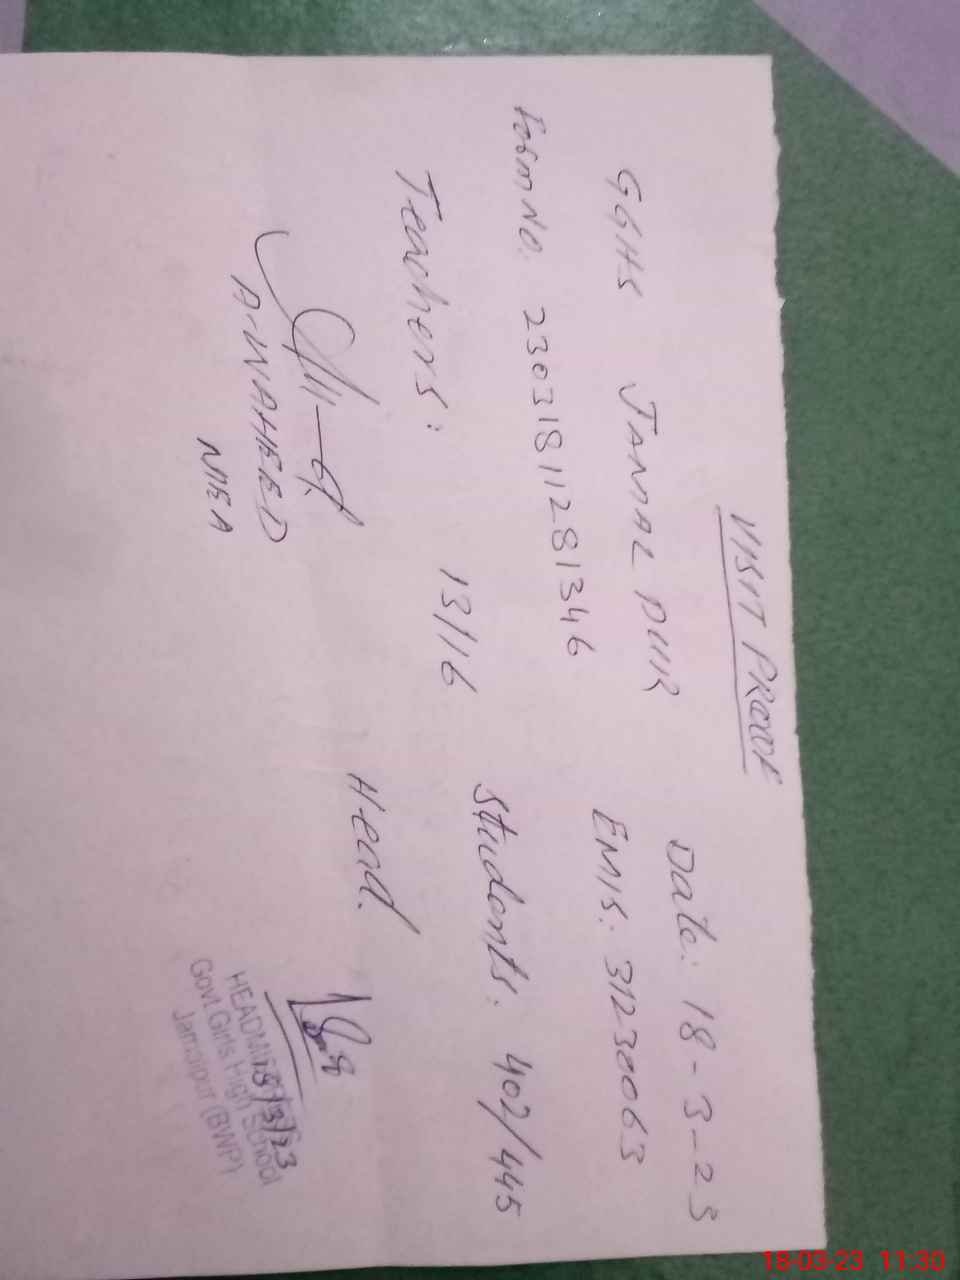 VISIT PROOF
Date: 18-3-23
GGHS JAMAL PUR EMIS: 31230063
Form No: 23031811281346
Teachers: 13/16 Students: 402/445
Head.
A-WAHEED
NIEA
18/3/23
HEADMISTRESS
Govt. Girls High School
Jamalpur (BWP)
18-03-23 11:30